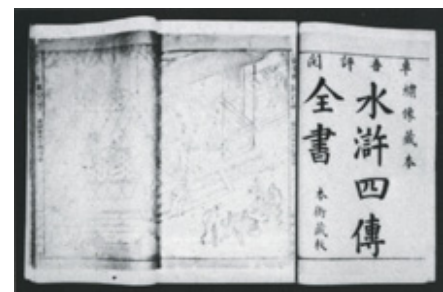 卓吾評閱
繡像藏本
水滸四傳
全書
本衙藏板